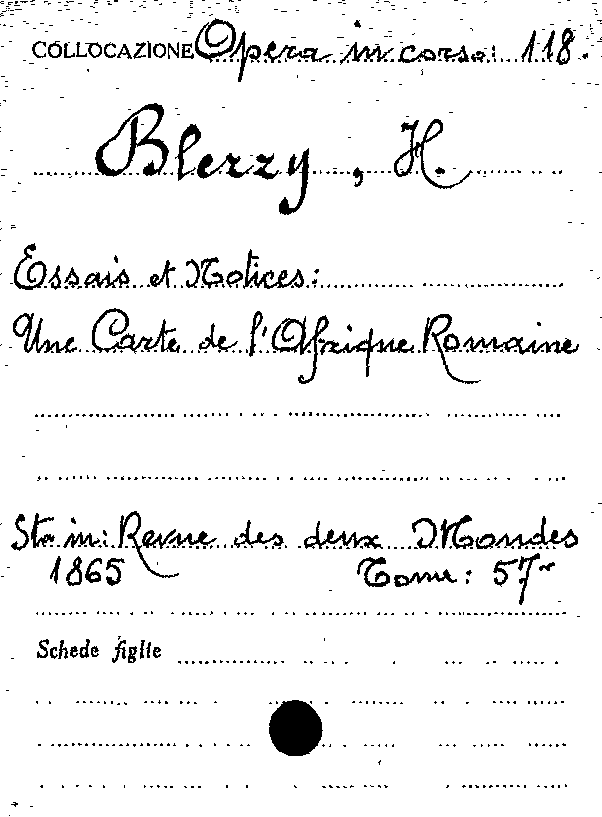 COLLOCAZIONE Opera in corso: 118.
Blerzy, H.
Essais et Notices:
Une Carte de l'Afrique Romaine
Sta in: Revue des deux Mondes
1865 Tome: 57
Schede figlie